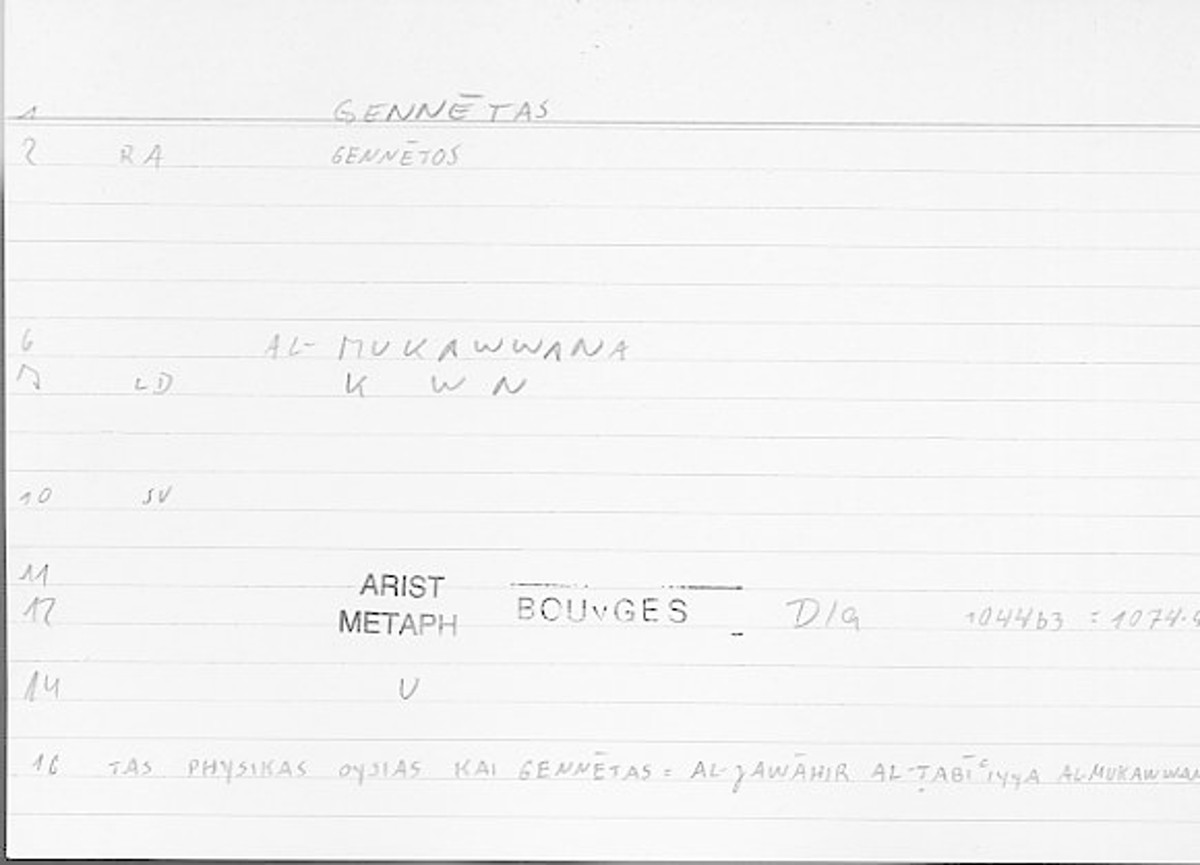 1 GENNĒTAS
2 RA GENNĒTOS
6 AL-MUKAWWANA
7 LD K W N
10 SV
11 ARIST
12 METAPH BOUYGES D/a 1044b3 = 1074.
14 V
16 TAS PHYSIKAS OYSIAS KAI GENNĒTAS = AL-JAWĀHIR AL-ṬABĪʿIYYA AL-MUKAWWAN